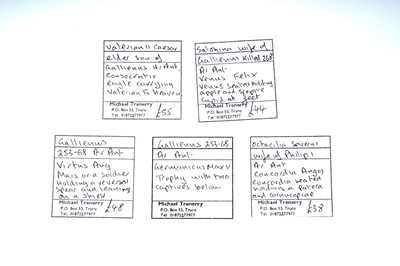 Valerian II Caesar
elder son of
Gallienus Ar Ant
Consecratio
eagle carrying
Valerian to heaven
Michael Trenerry
P.O. Box 55, Truro
Tel 01872277977
£55
Salonina wife of
Gallienus killed 268
Ar Ant-
Venus Felix
Venus seated holding
apple and sceptre
Cupid at feet
Michael Trenerry
P.O. Box 55, Truro
Tel 01872277977
£44
Gallienus
253-68 Ar Ant
Virtus Aug
Mars or a soldier
holding a reversed
spear and leaning
on a shield
Michael Trenerry
P.O. Box 55, Truro
Tel 01872277977
£48
Gallienus 253-68
Ar Ant-
Germanicus Max V
Trophy with two
captives below
Michael Trenerry
P.O. Box 55, Truro
Tel 01872277977
Octacilia Severa
wife of Philip I
Ar Ant
Concordia Augg
Concordia seated
holding a Patera
and cornucopiae
Michael Trenerry
P.O. Box 55, Truro
Tel 01872277977
£38